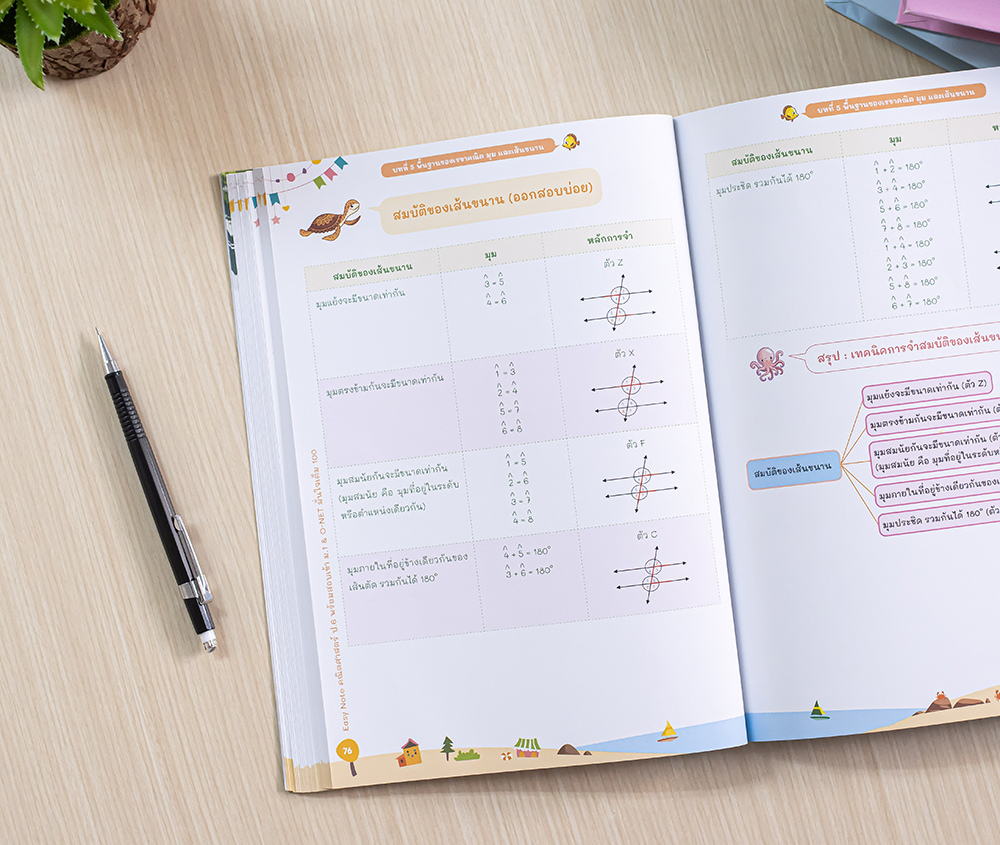 บทที่ 5 พื้นฐานของเรขาคณิต มุม และเส้นขนาน
สมบัติของเส้นขนาน (ออกสอบบ่อย)
สมบัติของเส้นขนาน มุม หลักการจำ
มุมแย้งจะมีขนาดเท่ากัน
3̂ = 5̂
4̂ = 6̂
ตัว Z
มุมตรงข้ามกันจะมีขนาดเท่ากัน
1̂ = 3̂
2̂ = 4̂
5̂ = 7̂
6̂ = 8̂
ตัว X
มุมสมนัยกันจะมีขนาดเท่ากัน
(มุมสมนัย คือ มุมที่อยู่ในระดับ
หรือตำแหน่งเดียวกัน)
1̂ = 5̂
2̂ = 6̂
3̂ = 7̂
4̂ = 8̂
ตัว F
มุมภายในที่อยู่ข้างเดียวกันของ
เส้นตัด รวมกันได้ 180°
4̂ + 5̂ = 180°
3̂ + 6̂ = 180°
ตัว C
Easy Note คณิตศาสตร์ ป.6 พร้อมสอบเข้า ม.1 & O-NET มั่นใจเต็ม 100
76
บทที่ 5 พื้นฐานของเรขาคณิต มุม และเส้นขนาน
สมบัติของเส้นขนาน มุม
มุมประชิด รวมกันได้ 180°
1̂ + 2̂ = 180°
3̂ + 4̂ = 180°
5̂ + 6̂ = 180°
7̂ + 8̂ = 180°
1̂ + 4̂ = 180°
2̂ + 3̂ = 180°
5̂ + 8̂ = 180°
6̂ + 7̂ = 180°
สรุป : เทคนิคการจำสมบัติของเส้นขน
สมบัติของเส้นขนาน
มุมแย้งจะมีขนาดเท่ากัน (ตัว Z)
มุมตรงข้ามกันจะมีขนาดเท่ากัน (ตั
มุมสมนัยกันจะมีขนาดเท่ากัน (ตั
(มุมสมนัย คือ มุมที่อยู่ในระดับห
มุมภายในที่อยู่ข้างเดียวกันของเ
มุมประชิด รวมกันได้ 180° (ตัว